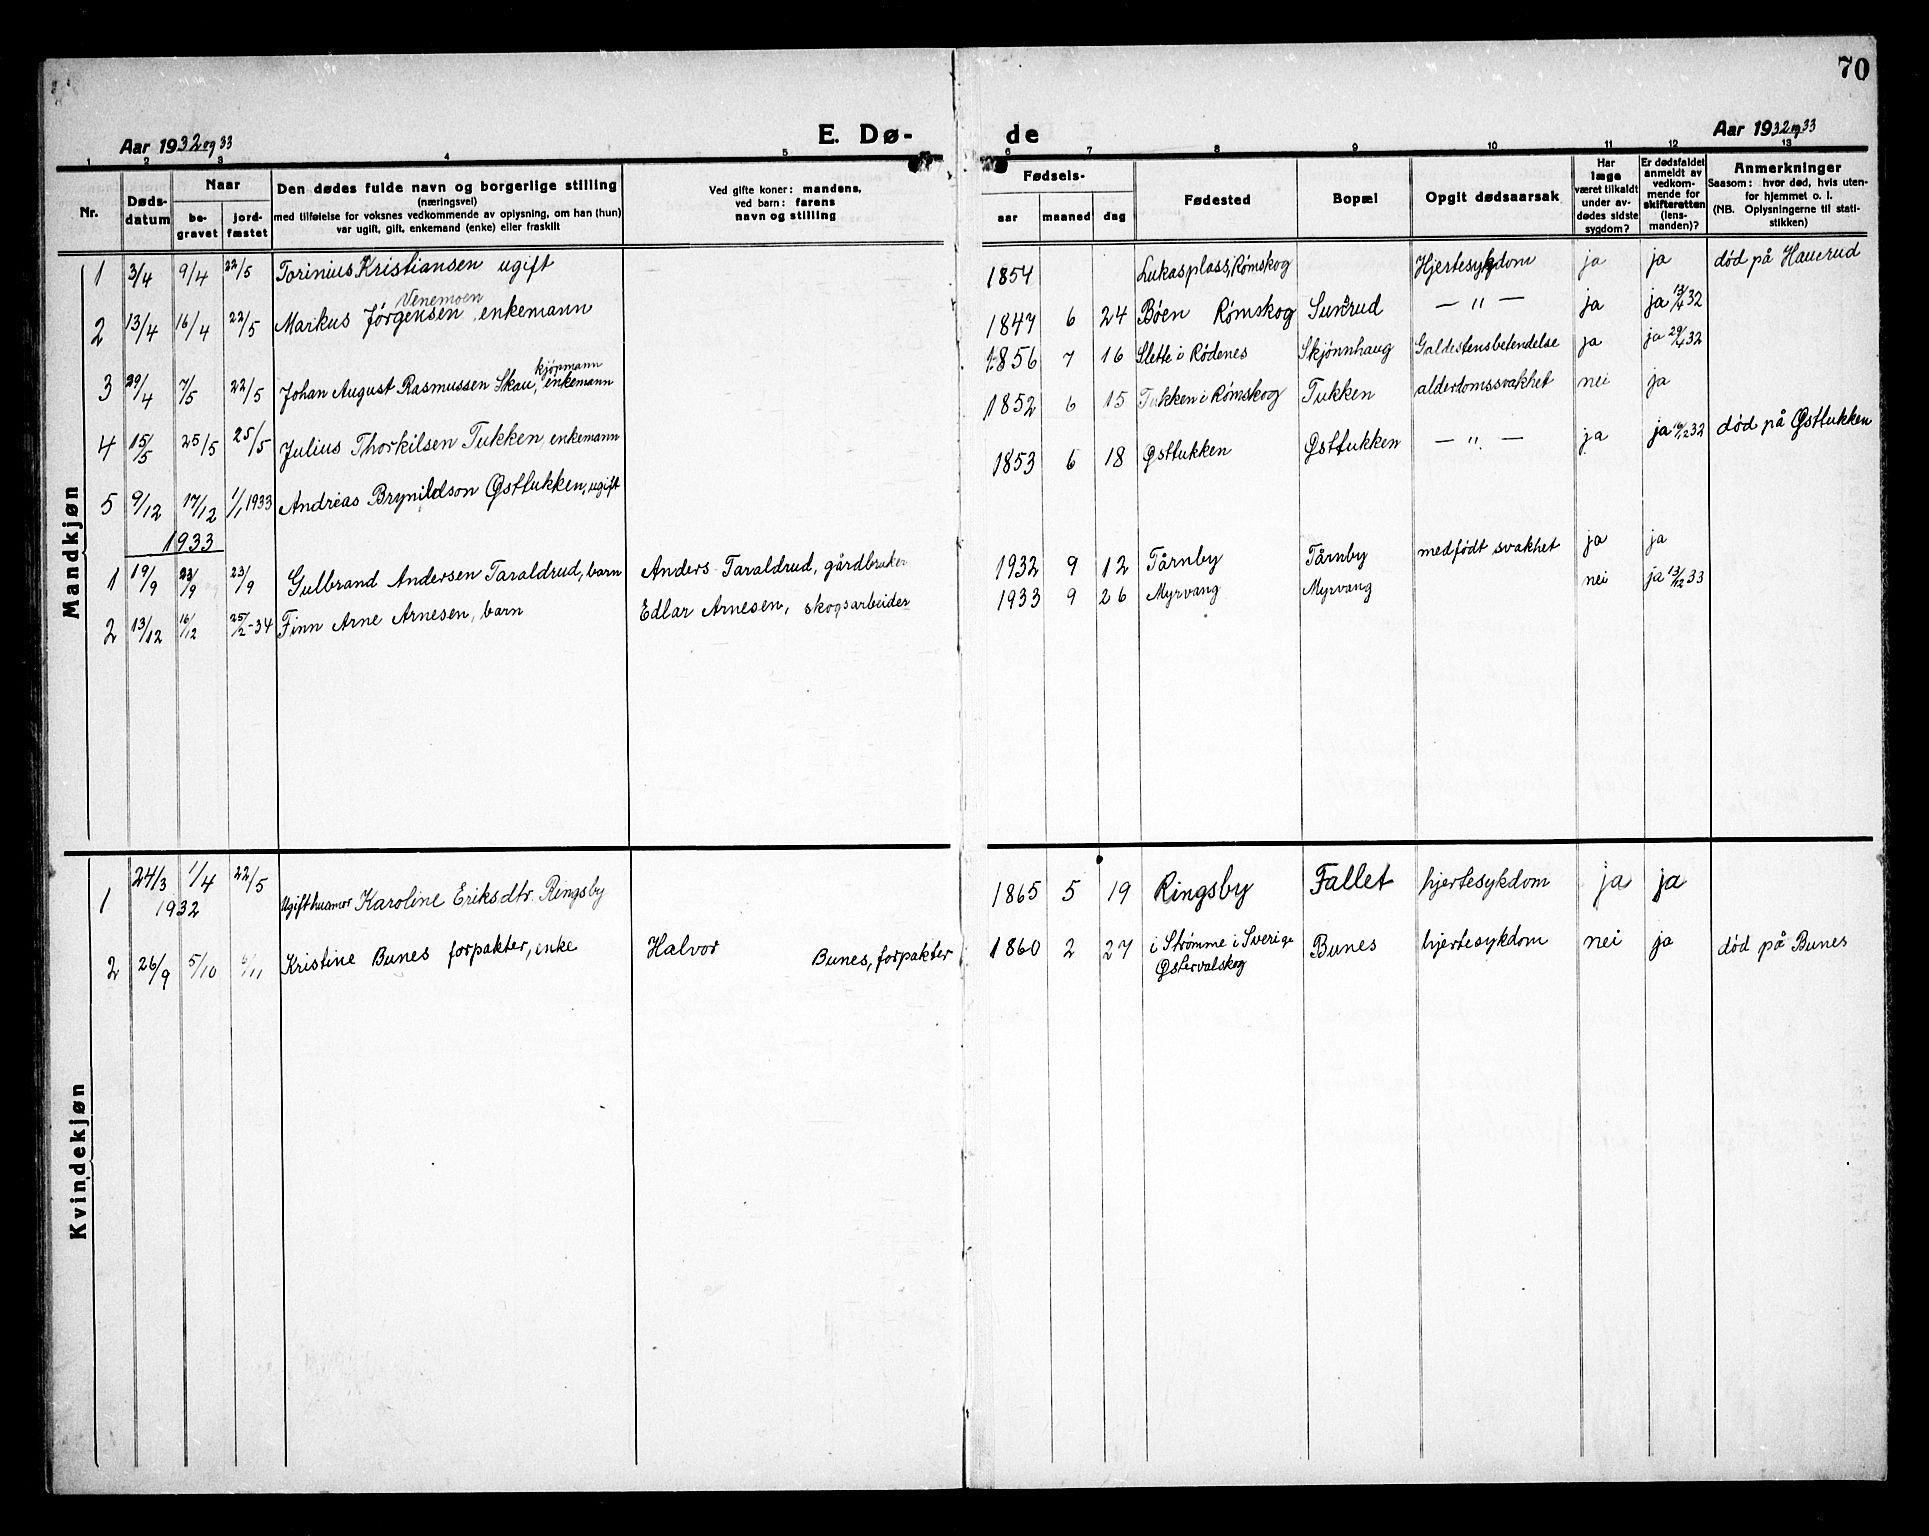 70
Aar 1932 og 33
E. Dø-
de
Aar 1932 og 33
1 2 3 4 5 6 7 8 9 10 11 12 13
Nr.
Døds-
datum
Naar
be-
gravet
jord-
fæstet
Den dødes fulde navn og borgerlige stilling
(næringsvei)
med tilføielse for voksnes vedkommende av oplysning, om han (hun)
var ugift, gift, enkemand (enke) eller fraskilt
Ved gifte koner: mandens,
ved barn: farens
navn og stilling
Fødsels-
aar maaned dag
Fødested
Bopæl
Opgit dødsaarsak
Har
læge
været tilkaldt
under av-
dødes sidste
sygdom?
Er dødsfaldet
anmeldt av
vedkom-
mende for
skifteretten
(lens-
manden)?
Anmerkninger
Saasom: hvor død, hvis uten-
for hjemmet o. l.
(NB. Oplysningerne til stati-
stikken)
Mandkjøn
1 3/4 9/4 22/5 Torinius Kristiansen ugift 1854 Lukasplass, Rømskog Hjertesykdom ja ja død på Hauerud
Venemoen
2 13/4 16/4 22/5 Markus Jørgensen, enkemann 1847 6 24 Bøen Rømskog Sundrud — " — ja ja 13/4 32
kjøpmann
3 29/4 7/5 22/5 Johan August Rasmussen Skau, enkemann 1856 7 16 Slette i Rødenes Skjønnhaug Galdestensbetendelse ja ja 29/4 32
4 15/5 25/5 25/5 Julius Thorkilsen Tukken, enkemann 1852 6 15 Tukken i Rømskog Tukken alderdomssvakhet nei ja
5 9/12 17/12 1/1 1933 Andreas Brynildson Østtukken, ugift 1853 6 18 Østtukken Østtukken — " — ja ja 32 død på Østtukken
1933
1 19/9 23/9 23/9 Gulbrand Andersen Taraldrud, barn Anders Taraldrud, gårdbruker 1932 9 12 Tårnby Tårnby medfødt svakhet ja ja
2 13/12 16/12 25/2-34 Finn Arne Arnesen, barn Edlar Arnesen, skogsarbeider 1933 9 26 Myrvang Myrvang nei ja 13/12 33
Kvindekjøn
1 24/3 1/4 22/5 Ugift Karoline Eriksdtr. Ringsby 1865 5 19 Ringsby Fallet hjertesykdom ja ja
1932
2 26/9 5/10 /11 Kristine Bunes forpakter, enke Halvor Bunes, forpakter 1860 2 27 i Strømme i Sverige Bunes hjertesykdom nei ja død på Bunes
Østervalskog